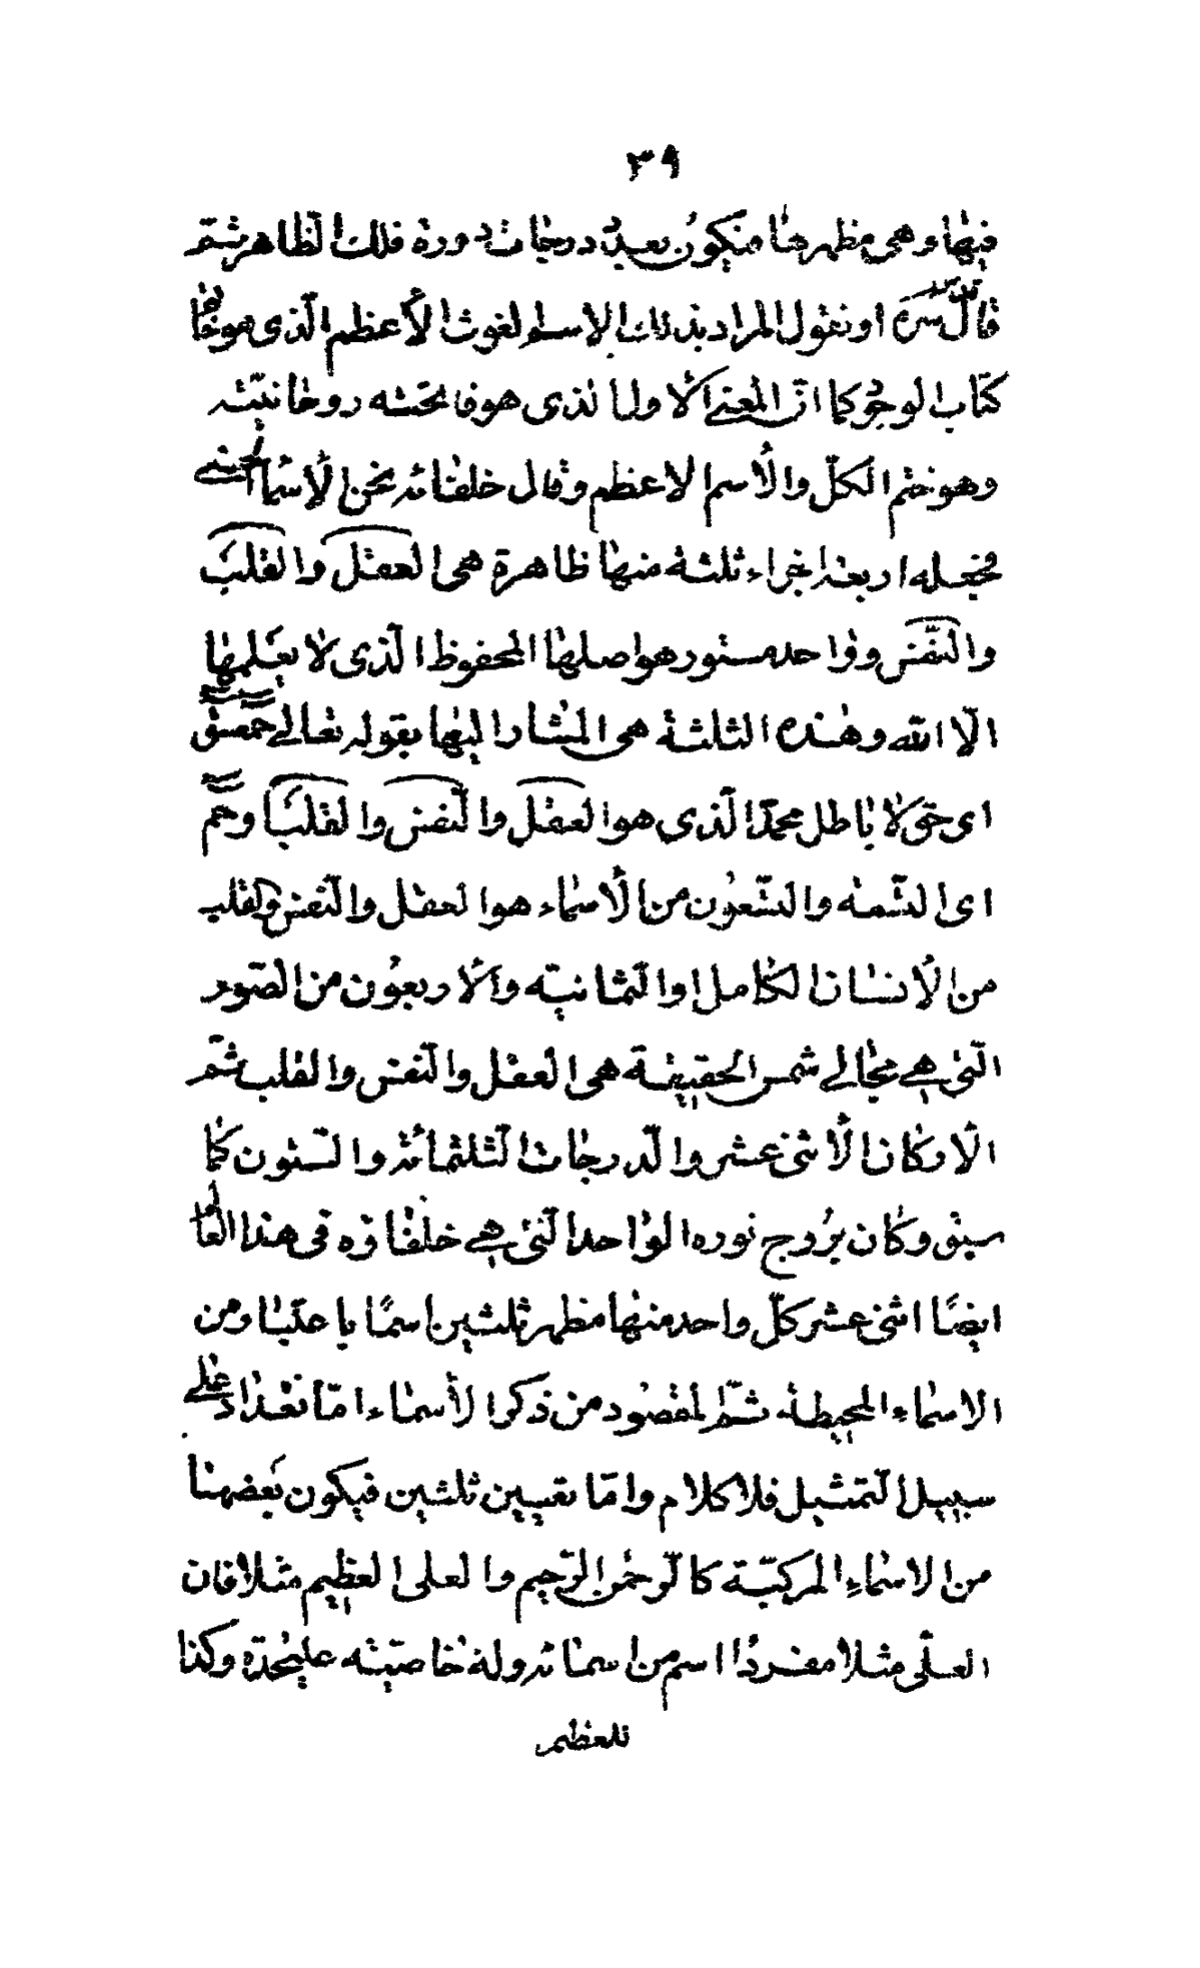 ٣٩
فيها وهى مظهرها فتكون بعدد درجات دورة فلك الظاهر ثم
قال قدس سره او نقول المراد بذلك الاسم الغوث الأعظم الذى هو خاتم
كتاب الوجود كما انّ المعنى الاول الذى هو فاتحته روحانيته
وهو ختم الكلّ والأسم الاعظم وقال خلفائه نحن الأسماء الحسنى
فجعله اربعة اجزاء ثلثة منها ظاهرة هى العقل والقلب
والنّفس وواحد مستور هو اصلها المحفوظ الّذى لا يعلمها
الّا الله وهذه الثلثة هى المشار اليها بقوله تعالى حمعسق
اى حق لا باطل محمد الّذى هو العقل والنّفس والقلب وحم
اى التسعه والتسعون من الأسماء هو العقل والنّفس والقلب
من الأنسان الكامل او الثمانيته والأربعون من الصّور
الّتى هي مجالي شمس الحقيقة هى العقل والنّفس والقلب ثمّ
الأركان الأثنى عشر والدرجات الثلثمائة والستون كما
سبق وكان بروج نوره الواحد الّتى هي خلفاؤه فى هذا العالم
ايضًا اثنى عشر كلّ واحد منها مظهر ثلثين اسمًا باعتبار ومن
الاسماء المحيطة ثمّ المقصود من ذكر الأسماء امّا تعداد على
سبيل التمثيل فلا كلام وامّا تعيين ثلثين فيكون بعضها
من الاسماءِ المركّبة كالرّحمن الرّحيم والعلى العظيم مثلا فان
العلّى مثلا مفردًا اسم من اسمائه وله خاصّيته عليحدّه وكذا
للعظيم